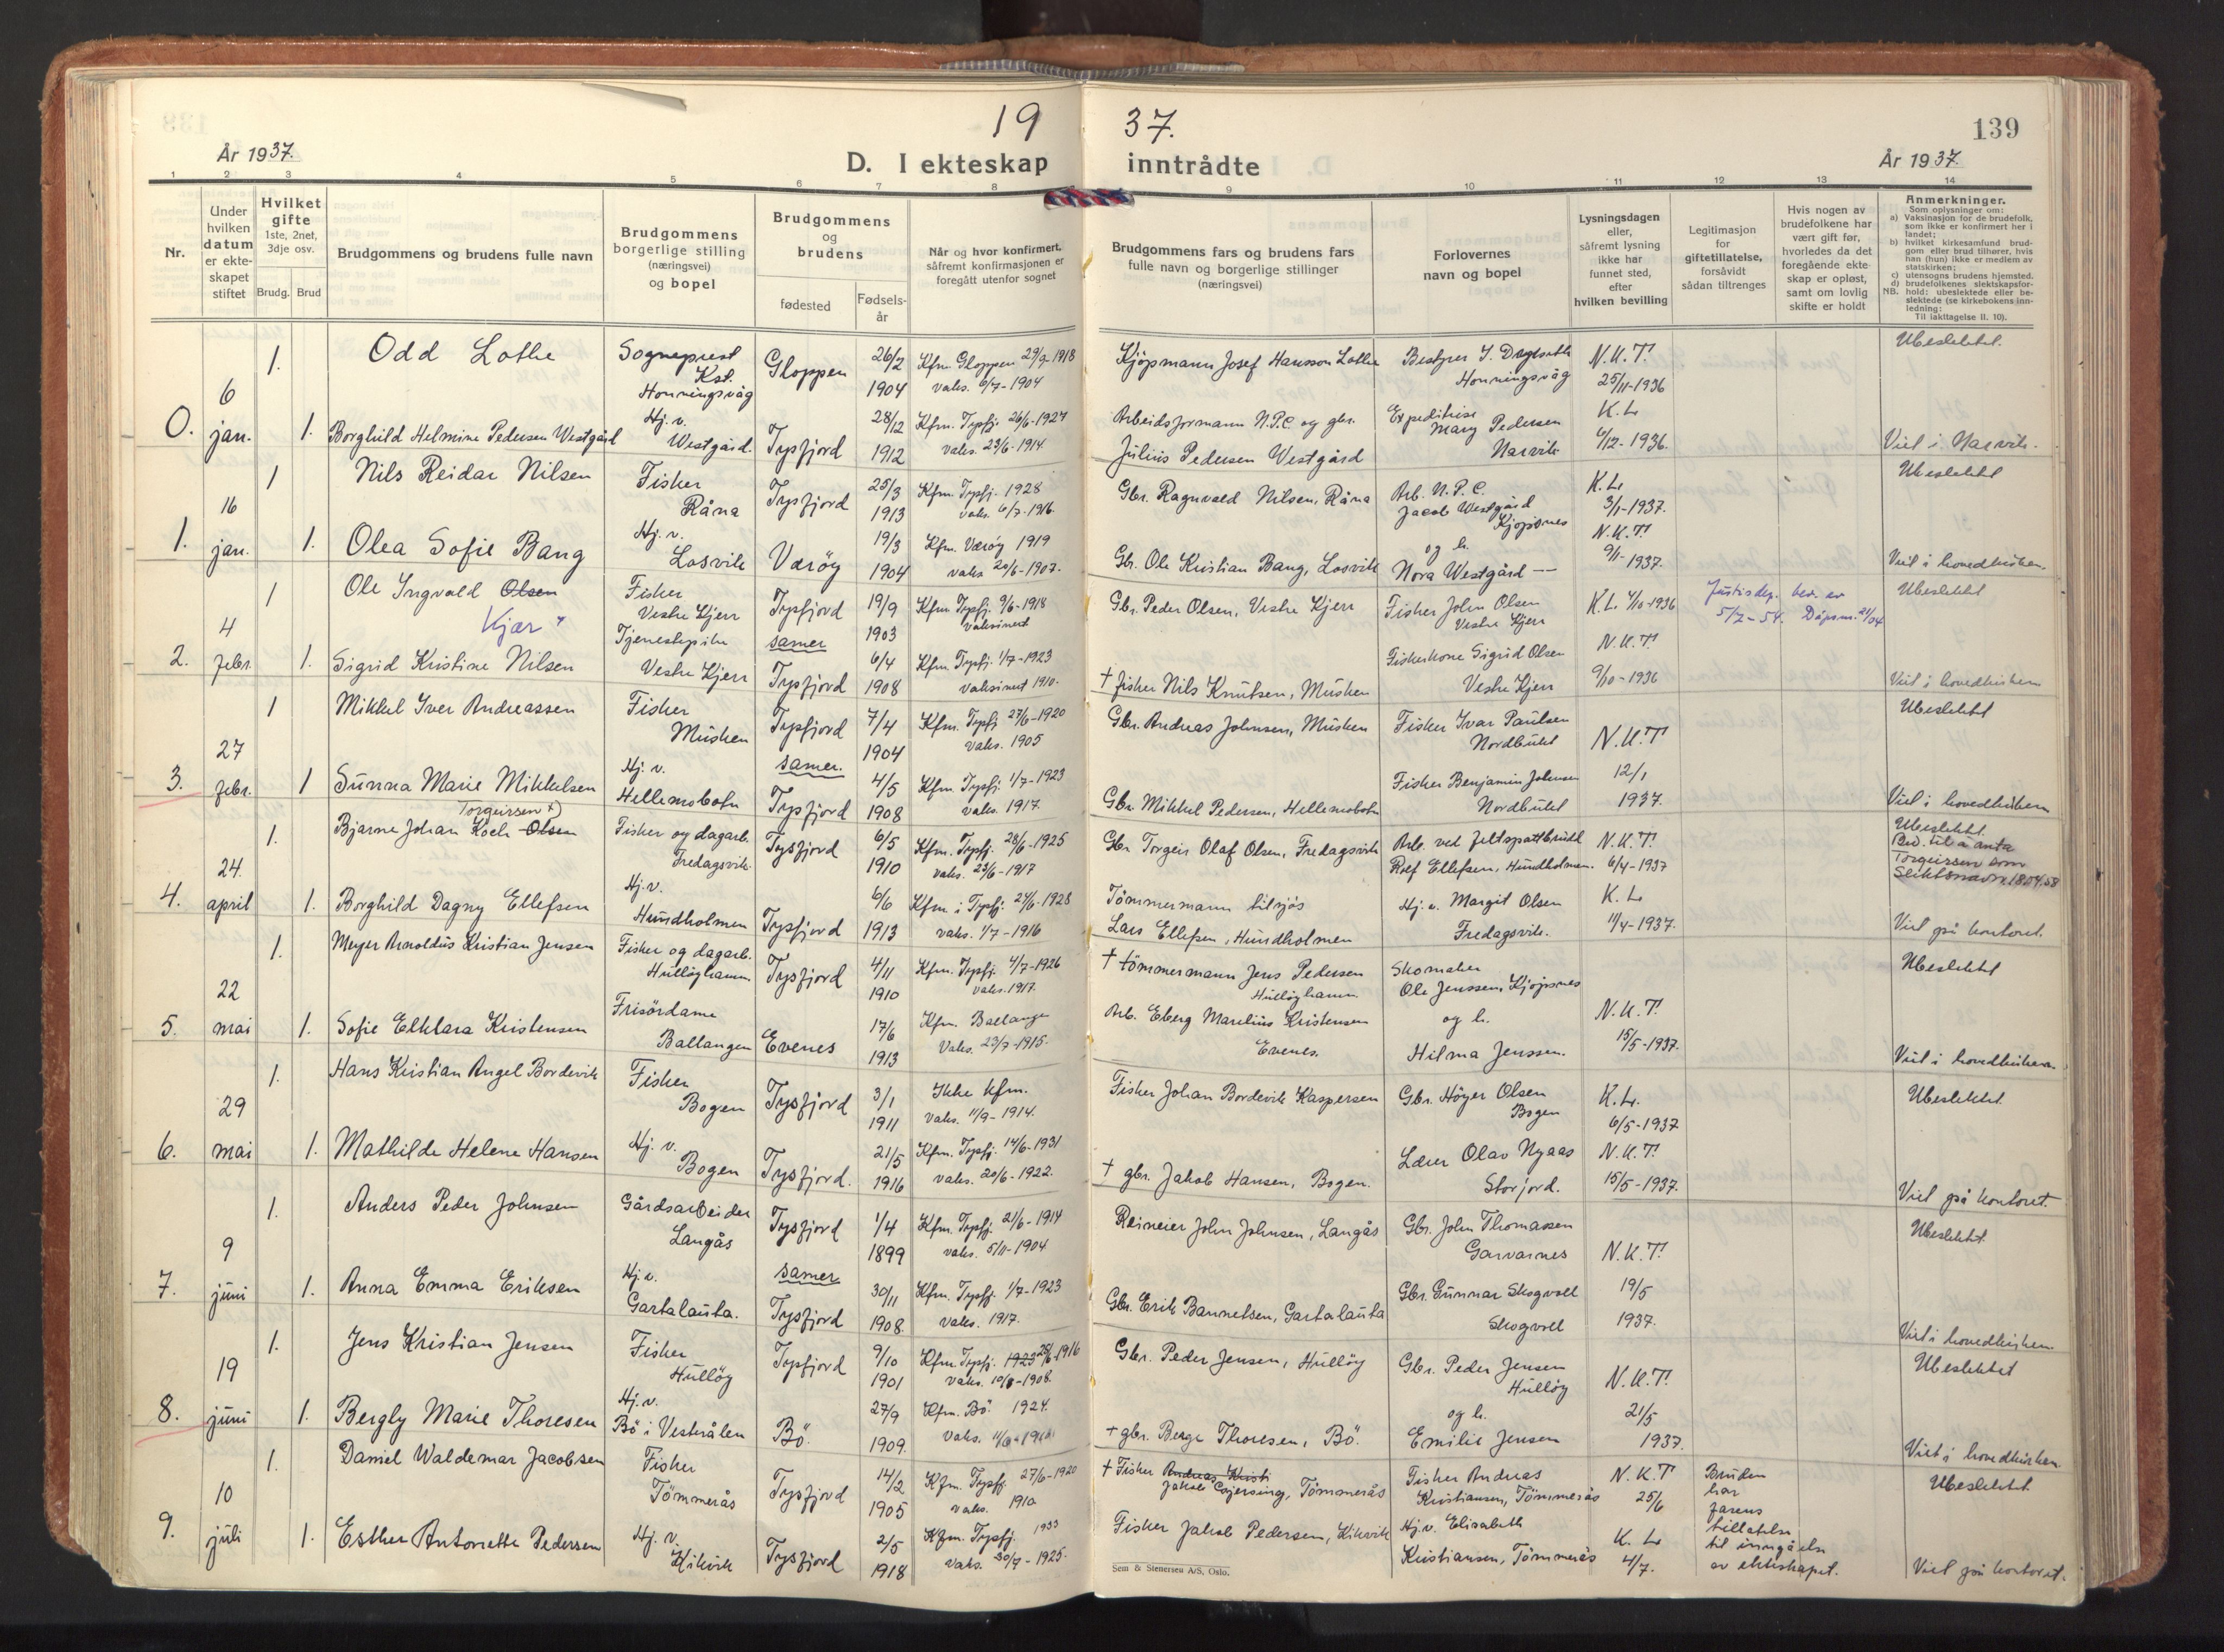 19 37.
139
År 1937.
D. I ekteskap inntrådte
År 1937.
1 2 3 4 5 6 7 8 9 10 11 12 13 14
Nr.
Under hvilken datum er ekteskapet stiftet
Hvilket gifte 1ste, 2net, 3dje osv.
Brudg. Brud
Brudgommens og brudens fulle navn
Brudgommens borgerlige stilling (næringsvei) og bopel
Brudgommens og brudens
fødested
Fødsels-år
Når og hvor konfirmert, såfremt konfirmasjonen er foregått utenfor sognet
Brudgommens fars og brudens fars fulle navn og borgerlige stillinger (næringsvei)
Forlovernes navn og bopel
Lysningsdagen eller, såfremt lysning ikke har funnet sted, efter hvilken bevilling
Legitimasjon for giftetillatelse, forsåvidt sådan tiltrenges
Hvis nogen av brudefolkene har vært gift før, hvorledes da det foregående ekteskap er opløst, samt om lovlig skifte er holdt
Anmerkninger.
Som oplysninger om:
a) Vaksinasjon for de brudefolk, som ikke er konfirmert her i landet;
b) hvilket kirkesamfund brudgom eller brud tilhører, hvis han (hun) ikke er medlem av statskirken;
c) utensogns brudens hjemsted.
d) brudefolkenes slektskapsforhold: ubeslektede eller beslektede (se kirkebokens innledning:
NB.
Til iakttagelse II. 10).
0. 6 jan.
1. Odd Lothe
Sogneprest Kst. Honningsvåg
Gloppen 26/2 1904
Kfm. Gloppen 29/9-1918
vaks. 6/7-1904
Kjøpmann Josef Hansson Lothe
Honningsvåg
N.K.T. 25/11-1936
Ubeslektet.
1. Borghild Helmine Pedersen Westgård
Hj. v. Westgård.
Tysfjord 28/12 1912
Kfm. Tysfj. 26/6-1927
vaks. 23/6-1914
Arbeidsformann N.P.C og gbr.
Julius Pedersen Westgård
Mary Pedersen
Narvik
K.L. 6/12-1936.
Viet i Narvik.
1. 16 jan.
1 Nils Reidar Nilsen
Fisker Råna
Tysfjord 25/3 1913
Kfm. Tysfj. 1928
vaks. 6/7-1916
Gbr. Ragnvald Nilsen, Råna
Arb. N.P.C. Jacob Westgård Kjøpsnes
K.L. 3/1-1937.
Ubeslektet
1. Olea Sofie Bang
Hj. v. Losvik
Værøy 19/3 1904
Kfm. Værøy 1919
vaks 20/6-1907.
Gbr. Ole Kristian Bang, Losvik
og h. Nora Westgård —
N.K.T. 9/1-1937.
Viet i hovedkirken.
2. 4 febr.
1 Ole Ingvald Olsen
Kjær "
Fisker Vestre Kjerr
Tysfjord 19/9 1903
samer
Kfm. Tysfj. 9/6-1918
vaksinert
Gbr. Peder Olsen, Vestre Kjerr
Fisker John Olsen Vestre Kjerr
K.L. 4/10-1936
Justisdep. bev. av 5/7-54.
Ubeslektet
1. Sigrid Kristine Nilsen
Tjenestepike Vestre Kjerr
Tysfjord 6/4 1908
Kfm. Tysfj. 1/7-1923
vaksinert 1910.
† fisker Nils Knutsen, Musken
Fiskerkone Sigrid Olsen Vestre Kjerr
N.K.T. 9/10-1936
Viet i hovedkirken
3. 27 febr.
1 Mikkel Iver Andreassen
Fisker Musken
Tysfjord 7/4 1904
samer.
Kfm. Tysfj 27/6-1920
vaks. 1905
Gbr. Andreas Johnsen, Musken
Fisker Ivar Paulsen Nordbukt
N.K.T 12/1 1937.
Ubeslektet
1 Sunna Marie Mikkelsen
Hj. v. Hellemobotn
Tysfjord 4/5 1908
Kfm. Tysfj. 1/7-1923
vaks. 1917
Gbr. Mikkel Pedersen, Hellemobotn
Fisker Benjamin Johnsen Nordbukt
Viet i hovedkirken
4. 24. april
Torgeirsen x)
1. Bjarne Johan Koch Olsen
Fisker og dagarb. Fredagsvik
Tysfjord 6/5 1910
Kfm. Tysfj. 28/6-1925
vaks. 23/6-1917
Gbr Torgeir Olaf Olsen, Fredagsvik
Arb. ved feltspattbrudd
Rolf Ellefsen, Hundholmen.
N.K.T. 6/4-1937
Ubeslektet.
Bev. til å anta
Torgeirsen som
Slektsnavn 18.04.58
1. Borghild Dagny Ellefsen
Hj. v. Hundholmen
Tysfjord 6/6 1913
Kfm i Tysfj. 24/6-1928
vaks. 1/7-1916
Tömmermann tilsjøs
Lars Ellefsen, Hundholmen
Hj. v. Margit Olsen
Fredagsvik.
K.L. 11/4-1937.
Viet på kontoret.
5. 22 mai
1. Meyer Arnoldus Kristian Jensen
Fisker og dagarb. Hulløyhamn
Tysfjord 4/11 1910
Kfm. Tysfj. 4/7-1926
vaks. 1917.
† tömmermann Jens Pedersen Hulløyhamn
Skomaker Ole Jenssen, Kjøpsnes
Ubeslektet
1. Sofie Elklara Kristensen
Frisördame Ballangen
Evenes 17/6 1913
Kfm. Ballangen
Vaks. 23/7-1915.
Arb. Eberg Marelius Kristensen Evenes.
og h. Hilma Jenssen.
N.K.T. 15/5-1937.
Viet i hovedkirken
6. 29 mai
1. Hans Kristian Angel Bordevik
Fisker Bogen
Tysfjord 3/1 1911
Ikke kfm.
vaks. 11/9-1914.
Fisker Johan Bordevik Kaspersen
Gbr. Höyer Olsen Bogen
K.L. 6/5-1937
Ubeslektet.
1. Mathilde Helene Hansen
Hj. v. Bogen
Tysfjord. 21/5 1916
Kfm. Tysfj. 14/6-1931
vaks. 20/6-1922.
† gbr. Jakob Hansen, Bogen.
Lærer Olav Nyaas Storjord.
N.K.T. 15/5-1937.
Viet på kontoret.
7. 9 juni
1. Anders Peder Johnsen
Gårdsarbeider Langås
Tysfjord 1/4 1899
samer
Kfm. Tysfj. 21/6-1914
vaks. 5/11-1904
Reineier John Johnsen, Langås
Gbr. John Thomassen Garvarnes
N.K.T. 19/5 1937.
Ubeslektet.
1. Anna Emma Eriksen
Hj. v. Gartalauta.
Tysfjord 30/11 1908.
Kfm. Tysfj. 1/7-1923
vaks. 1917.
Gbr. Erik Bannetsen, Gartalauta
Gbr. Gunnar Skogvoll Skogvoll
Viet i hovedkirken
8. 19 juni
1. Jens Kristian Jensen
Fisker Hulløy
Tysfjord 9/10 1901
Kfm. Tysfj. 1923 25/6-1916
vaks. 10/8-1908.
Gbr. Peder Jensen, Hulløy
Gbr. Peder Jensen Hulløy
N.K.T. 21/5 1937.
Ubeslektet
1. Bergly Marie Thoresen
Hj. v. Bö i Vesterålen
Bö. 27/9 1909.
Kfm. Bö. 1924.
† gbr. Berge Thoresen, Bö.
og h. Emilie Jensen
Viet i hovedkirken.
9. 10 juli
1. Daniel Waldemar Jacobsen
Fisker Tömmerås
Tysfjord 14/2 1905
Kfm. Tysfj. 27/6-1920
vaks. 1910
† Fisker Andreas Kristi
Jakob Gjersing, Tömmerås
Fisker Andreas Kristiansen, Tömmerås
N.K.T 25/6
Bruden har farens tillatelse til inngåelse av ekteskapet.
Ubeslektet
1. Esther Antonette Pedersen
Hj. v. Kikvik
Tysfjord 2/5 1918
Kfm. Tysfj. 1933
vaks. 30/7-1925.
Fisker Jakob Pedersen, Kikvik
Hj. v. Elisabeth Kristiansen, Tömmerås
K.L. 4/7.
Viet på kontoret.
Sem & Stenersen A/S, Oslo.